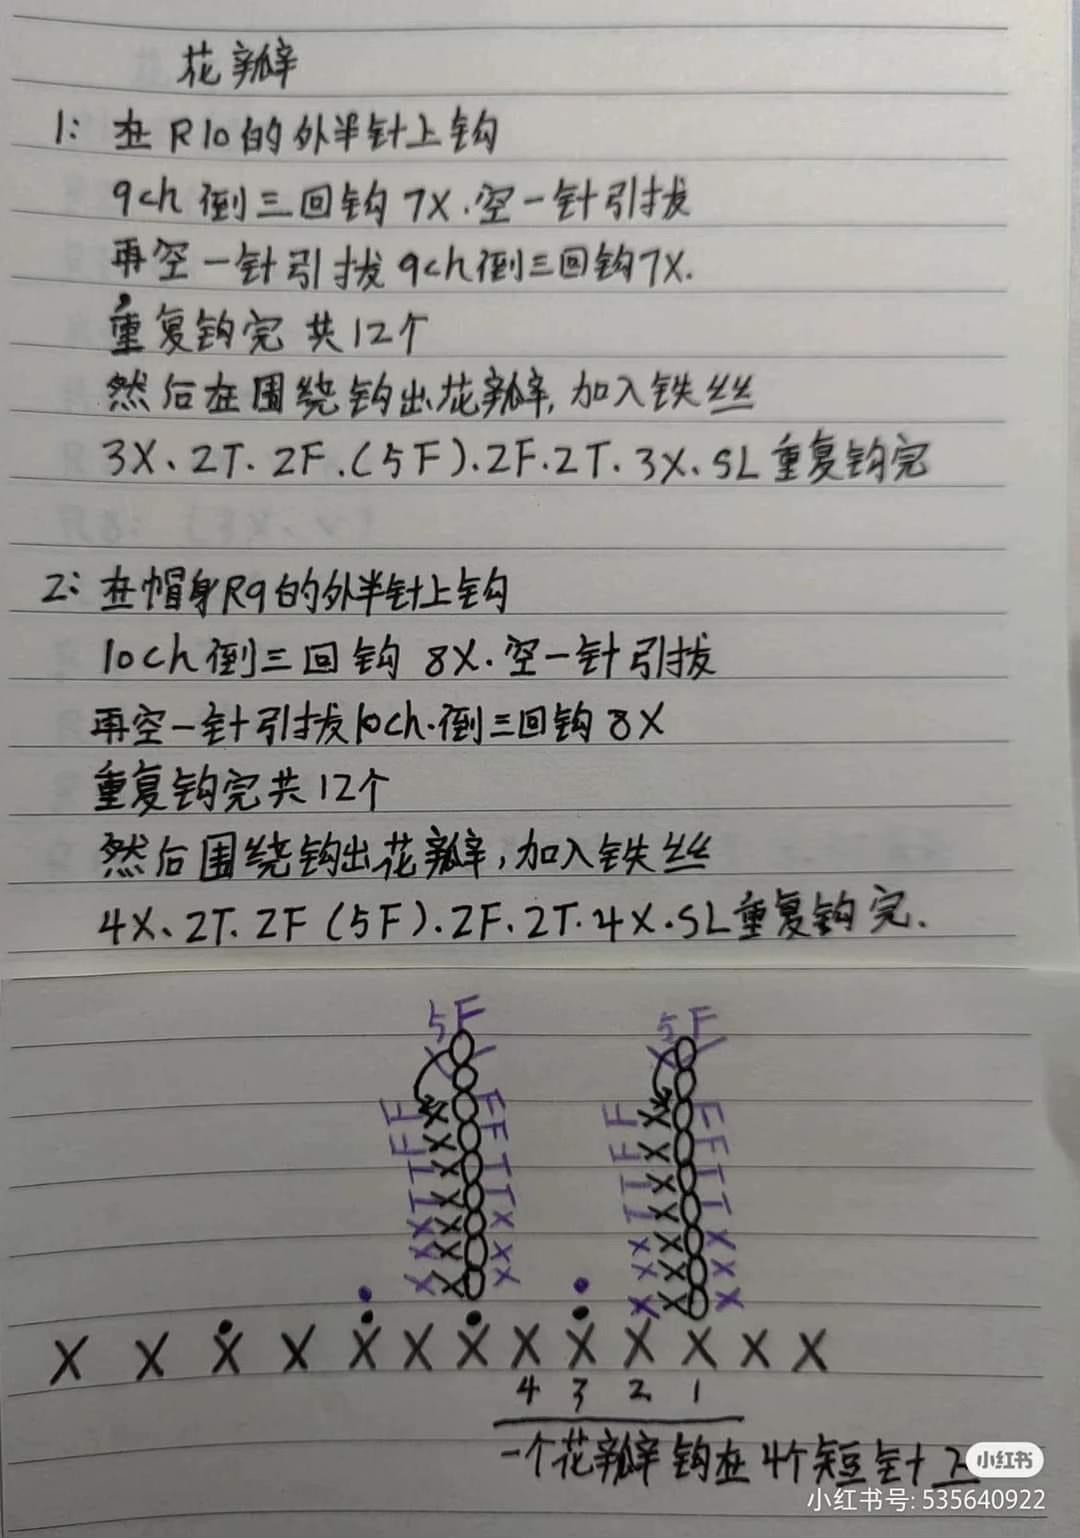 花瓣
1: 在R10的外半针上钩
9ch倒三回钩7X.空一针引拔
再空一针引拔9ch倒三回钩7X.
重复钩完 共12个
然后在围绕钩出花瓣,加入铁丝
3X、2T.2F.(5F).2F.2T.3X.SL重复钩完
2: 在帽身R9的外半针上钩
10ch倒三回钩 8X.空一针引拔
再空一针引拔10ch.倒三回钩8X
重复钩完共12个
然后围绕钩出花瓣,加入铁丝
4X、2T.2F(5F).2F.2T.4X.SL重复钩完.
5F 5F
F X F F X F
F X F F X F
T X T T X T
T X T T X T
X X X X X X
X X X X X X
X X X X X X
X X X X X X X X X X X X X
4 3 2 1
一个花瓣钩在4个短针上
小红书
小红书号: 535640922